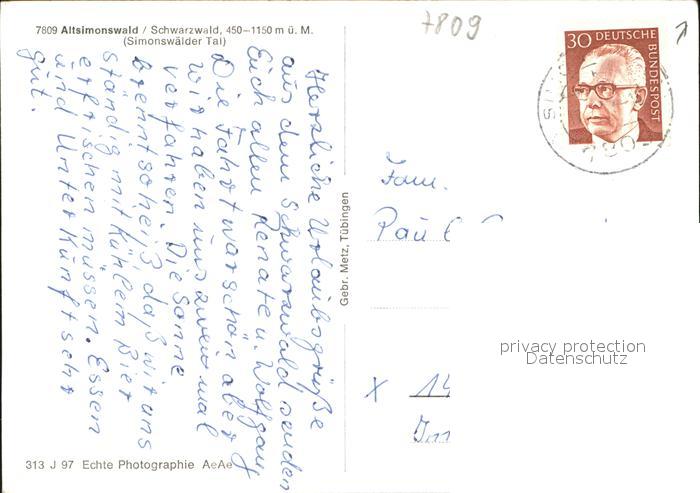 7809 Altsimonswald / Schwarzwald, 450–1150 m ü. M.
(Simonswälder Tal)
Herzliche Urlaubsgrüße
aus dem Schwarzwald senden
Euch allen Renate u. Wolfgang
Die Fahrt war schön aber
wir haben uns zweimal
verfahren. Die Sonne
brennt so heiß daß wir uns
ständig mit kühlem Bier
erfrischen müssen. Essen
und Unterkunft sehr
gut.
313 J 97 Echte Photographie AeAe
Gebr. Metz, Tübingen
7809
30 DEUTSCHE
BUNDESPOST
Fam.
Paul
privacy protection
Datenschutz
X 14